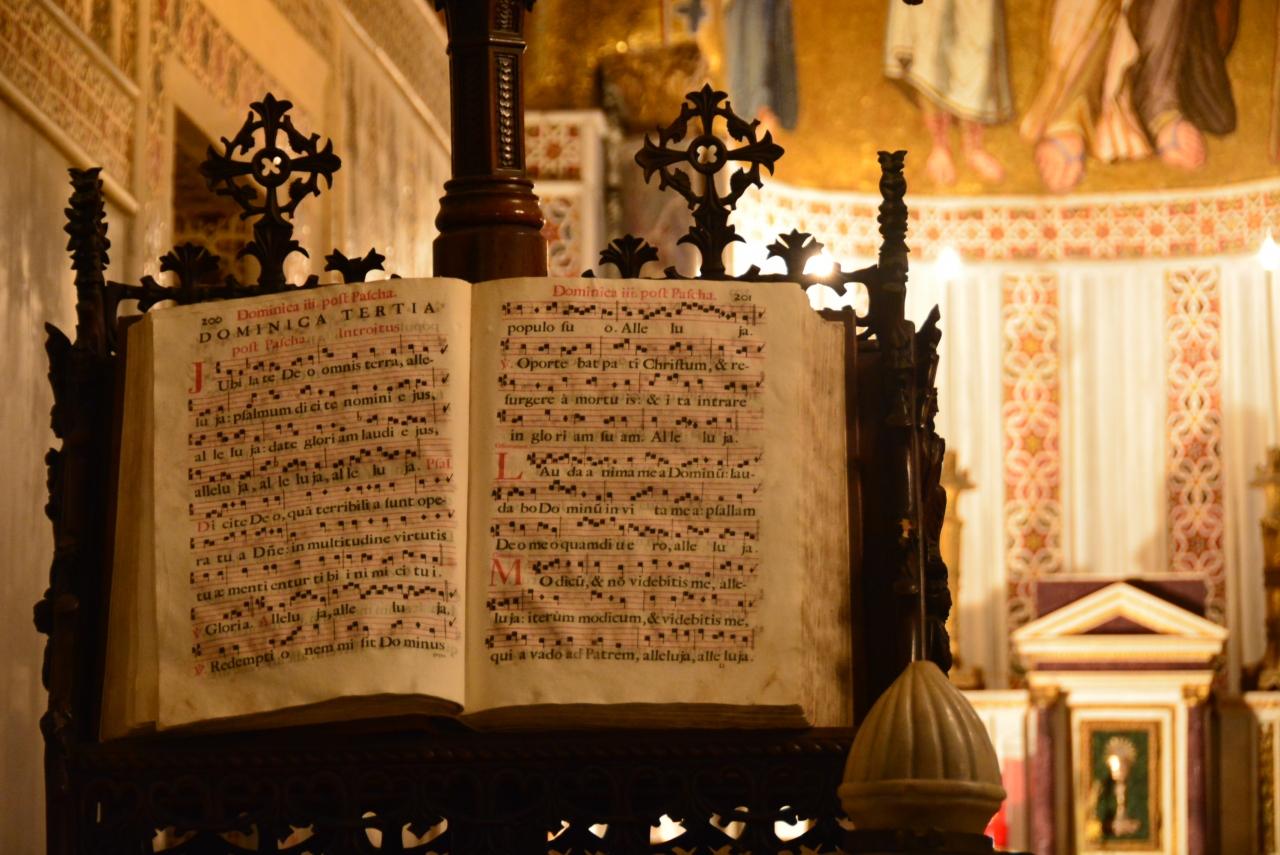 Dominica iii. poſt Paſcha.
200
DOMINICA TERTIA
poſt Paſcha. Introitus
JUbi la te De o omnis terra, alle-
lu ja: pſalmum di ci te nomini e jus,
al le lu ja: date glori am laudi e jus,
allelu ja, al le lu ja, al le lu ja. Pſal.
Di cite De o, quā terribili a ſunt ope-
ra tu a Dñe: in multitudine virtutis
tu æ menti entur ti bi i ni mi ci tu i.
℣ Gloria. Allelu ja, alle lu ja.
℣. Redempti o nem mi ſit Do minus
Dominica iii. poſt Paſcha. 201
populo ſu o. Alle lu ja.
℣. Oporte bat pa ti Chriſtum, & re-
ſurgere à mortu is: & i ta intrare
in glo ri am ſu am. Al le lu ja.
LAu da a nima me a Dominū: lau-
da bo Do minū in vi ta me a: pſallam
De o me o quamdi u e ro, alle lu ja.
MO dicū, & nō videbitis me, alle-
lu ja: iterùm modicum, & videbitis me,
qui a vado ad Patrem, alleluja, alle luja.